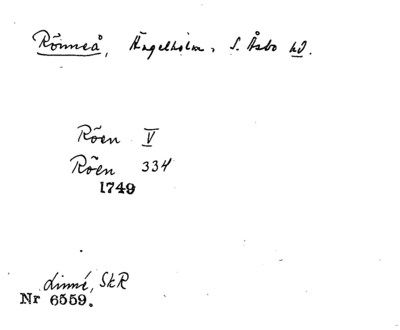 Rönneå, Ängelholm, S. Åsbo hd.
Röen V
Röen 334
1749
Linné, SkR
Nr 6559.